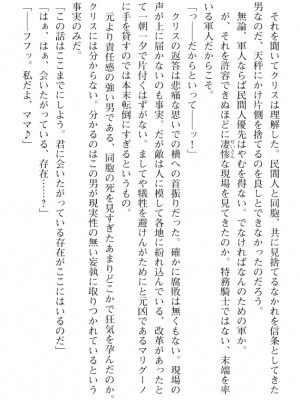 それを聞いてクリスは理解した。民間人と同胞、共に見捨てるなかれを信条としてきた
男なのだ、天秤にかけ片側を捨てるのを良しとできなかったのだろう。
無論、軍人ならば民間人優先はやむを得ない。でなければなんのための軍か。
が、それを許容できぬほどに凄惨な現場を見てきたのか。特務騎士ではない、末端を率
いる軍人だからこそ。
「っ――だからといって――ッ！」
クリスの返答は悲痛な思いでの横への首振りだった。確かに腐敗は無くもない。現場の
声が上に届かないのも事実。だが敵は人に模して各地に紛れ込んでいる、改革があったと
て一朝一夕で片付くはずがない。ましてや犠牲を避けんがためにと元凶であるマリグーノ
に手を貸すのでは本末転倒にすぎるというもの。
元より責任感の強い男である、同胞の死を見すぎたあまりどこかで狂気を孕んだのか。
クリスには分からない、分かるのはこの男が現実性の無い妄執に取りつかれているという
事実のみだ。
「この話はここまでにしよう。君に会いたがっている存在がここにはいるのだ」
「はぁ、はぁ、会いたがっている、存在……？」
「――フフッ。私だよ、ママ♪」